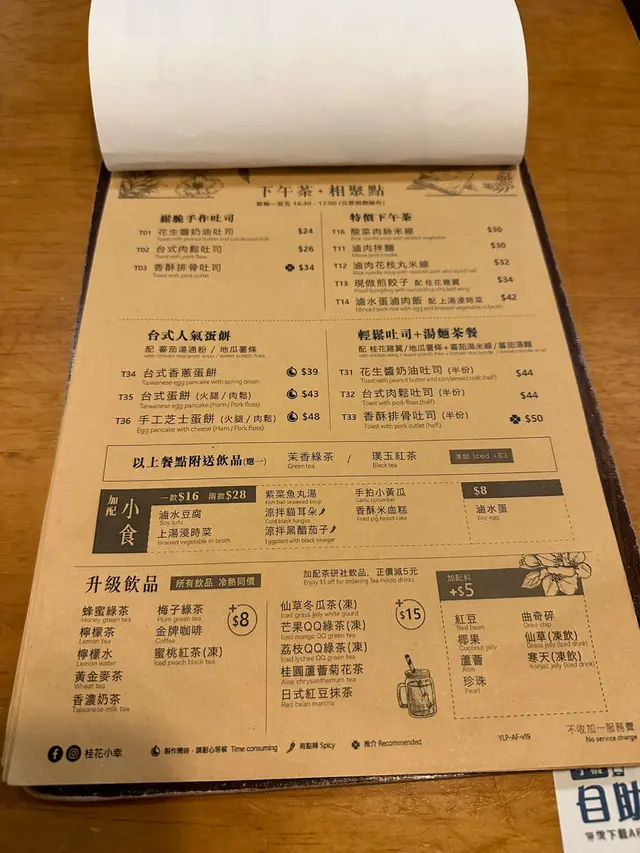 下午茶·相聚點
鬆脆手作吐司
T01 花生醬奶油吐司 $24
Toast with peanut butter and condensed milk
T02 台式肉鬆吐司 $26
Toast with pork floss
T03 香酥排骨吐司 $34
Toast with pork cutlet
特價下午茶
T16 酸菜肉絲米線 $30
T11 滷肉拌麵 $30
T12 滷肉花枝丸米線 $32
T13 現做煎餃子 配 桂花雞翼 $34
T14 滷水蛋滷肉飯 配 上湯浸時菜 $42
Minced pork rice with egg and braised vegetable in broth
台式人氣蛋餅
配 蕃茄湯通粉 / 地瓜薯條
T34 台式香蔥蛋餅 $39
Taiwanese egg pancake with spring onion
T35 台式蛋餅 (火腿 / 肉鬆) $43
Taiwanese egg pancake (Ham / Pork floss)
T36 手工芝士蛋餅 (火腿 / 肉鬆) $48
Egg pancake with cheese (Ham / Pork floss)
輕鬆吐司+湯麵茶餐
配 桂花雞翼/地瓜薯條+蕃茄湯米線/蕃茄湯麵
T31 花生醬奶油吐司 (半份) $44
Toast with peanut butter and condensed milk (half)
T32 台式肉鬆吐司 (半份) $44
Toast with pork floss (half)
T33 香酥排骨吐司 (半份) $50
Toast with pork cutlet (half)
以上餐點附送飲品(選一) 茉香綠茶 / 璞玉紅茶 凍飲 Iced +$3
Green tea Black tea
加配 小食
一款$16 兩款$28
滷水豆腐
Soy tofu
上湯浸時菜
Braised vegetable in broth
紫菜魚丸湯
Fish ball seaweed soup
涼拌貓耳朵
Cold black fungus
涼拌黑醋茄子
Eggplant with black vinegar
手拍小黃瓜
Garlic cucumber
香酥米血糕
Fried pig blood cake
$8
滷水蛋
Soy egg
升級飲品 所有飲品 冷熱同價
蜂蜜綠茶
Honey green tea
檸檬茶
Lemon tea
檸檬水
Lemon water
黃金麥茶
Wheat tea
香濃奶茶
Taiwanese milk tea
梅子綠茶
Plum green tea
金牌咖啡
Coffee
蜜桃紅茶(凍)
Iced peach black tea
+$8
加配茶研社飲品，正價減5元
Enjoy $5 off for ordering Tea mikoo drinks
仙草冬瓜茶(凍)
Iced grass jelly white gourd
芒果QQ綠茶(凍)
Iced mango QQ green tea
荔枝QQ綠茶(凍)
Iced lychee QQ green tea
桂圓蘆薈菊花茶
Aloe chrysanthemum tea
日式紅豆抹茶
Red bean matcha
+$15
加配料
+$5
紅豆
Red bean
椰果
Coconut jelly
蘆薈
Aloe
珍珠
Pearl
曲奇碎
Oreo chip
仙草(凍飲)
Grass jelly (Iced drink)
寒天(凍飲)
Konjac jelly (Iced drink)
不收加一服務費
No service charge
桂花小幸
製作需時，請耐心等候 Time consuming
有點辣 Spicy
推介 Recommended
YLP-AF-v19
自助